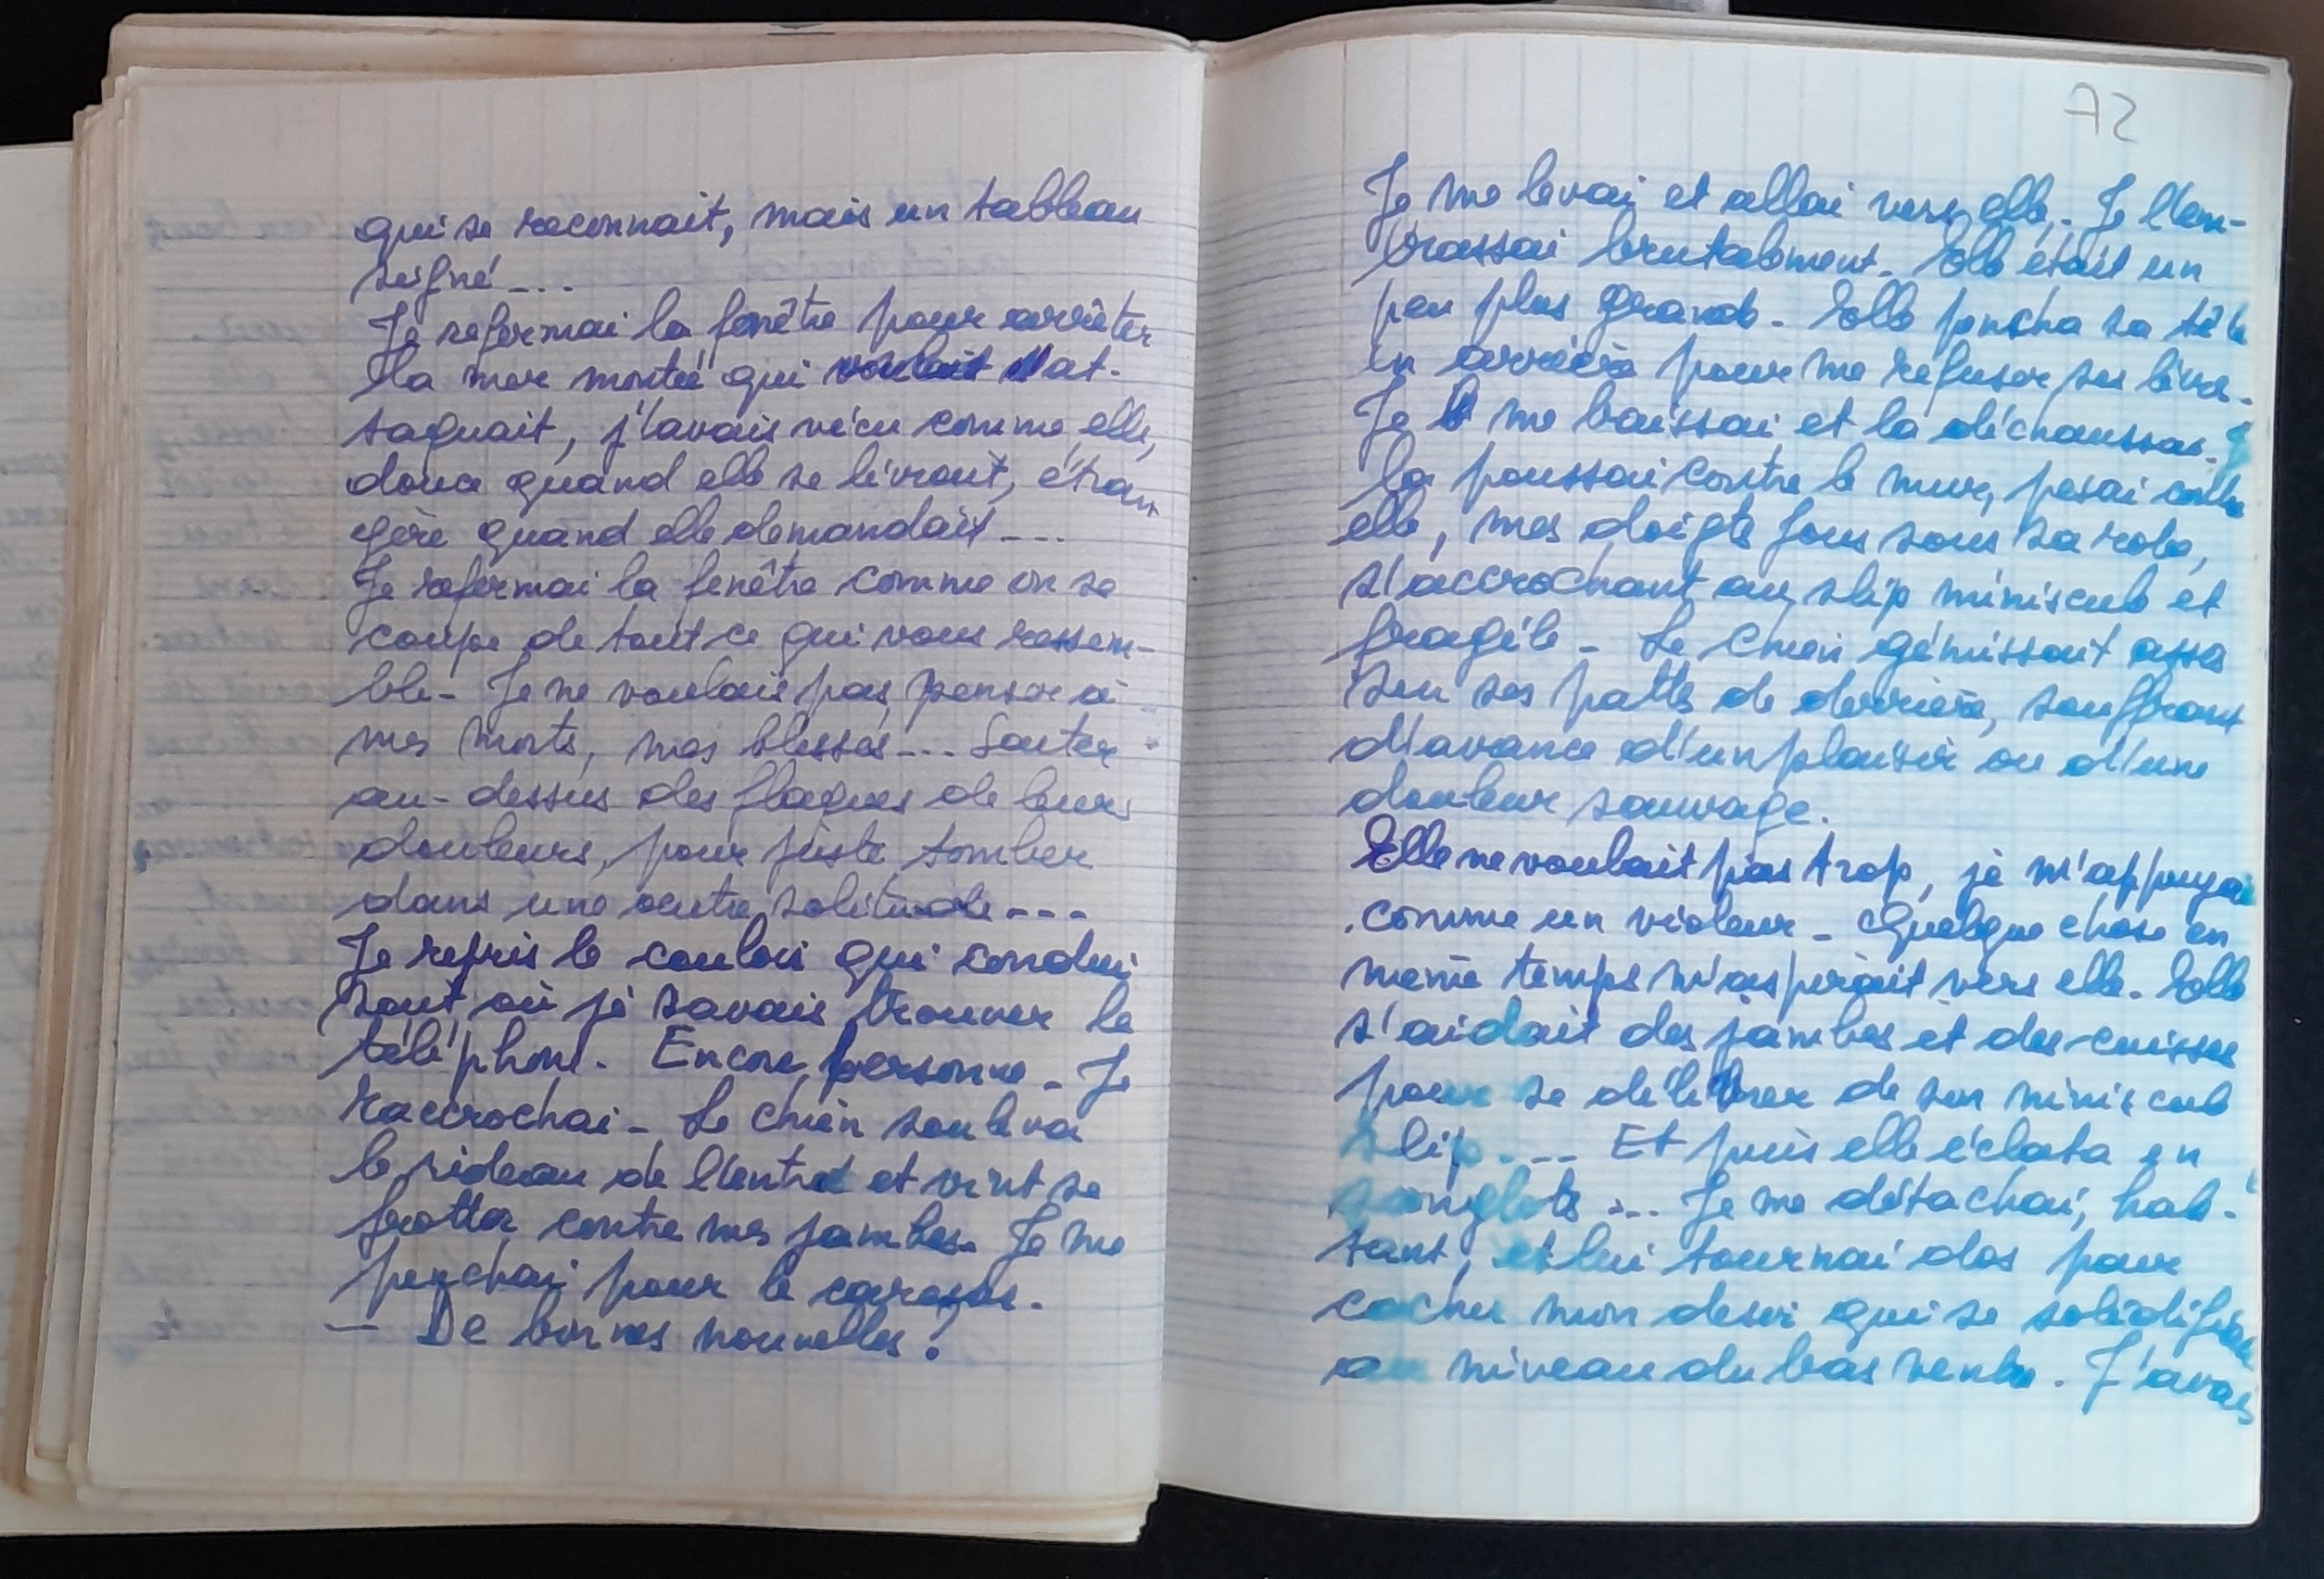 qui se reconnait, mais un tableau
signé ...
Je refermai la fenêtre pour arrêter
la mer montée qui voulait
, j'avais vécu comme elle,
douce quand elle se livrait, étran
gère quand elle demandait ...
Je refermai la fenêtre comme on se
coupe de tout ce qui vous ressem-
ble - Je ne voulais pas penser à
mes morts, mes blessés ... Sauter
au-dessus des flaques de leurs
douleurs, pour juste tomber
dans une autre solitude ...
Je repris le couloir qui condui
sait où je savais trouver le
téléphone. Encore personne - Je
raccrochai - Le chien souleva
le rideau de l'entrée et vint se
frotter contre mes jambes. Je me
penchai pour le caresser.
— De bonnes nouvelles ?
72
Je me levai et allai vers elle. Je l'em-
brassai brutalement. Elle était un
peu plus grande - Elle pencha sa tête
en arrière pour me refuser ses lèvres.
Je me baissai et la déchaussai. J
la poussai contre le mur, pesai contre
elle, mes doigts fous sous sa robe,
s'accrochant au slip miniscule et
fragile - Le chien gémissait assis
sur ses pattes de derrière, souffrant
d'avance d'un plaisir ou d'une
douleur sauvage.
Elle ne voulait pas trop, je m'appuyai
comme un violeur - Quelque chose en
même temps m'aspirait vers elle. Elle
s'aidait des jambes et des cuisses
pour se délibrer de son miniscule
slip ... Et puis elle éclata en
sanglots ... Je me détachai, hale-
tant, et lui tournai dos pour
cacher mon désir qui se solidifiait
au niveau du bas ventre. J'avais